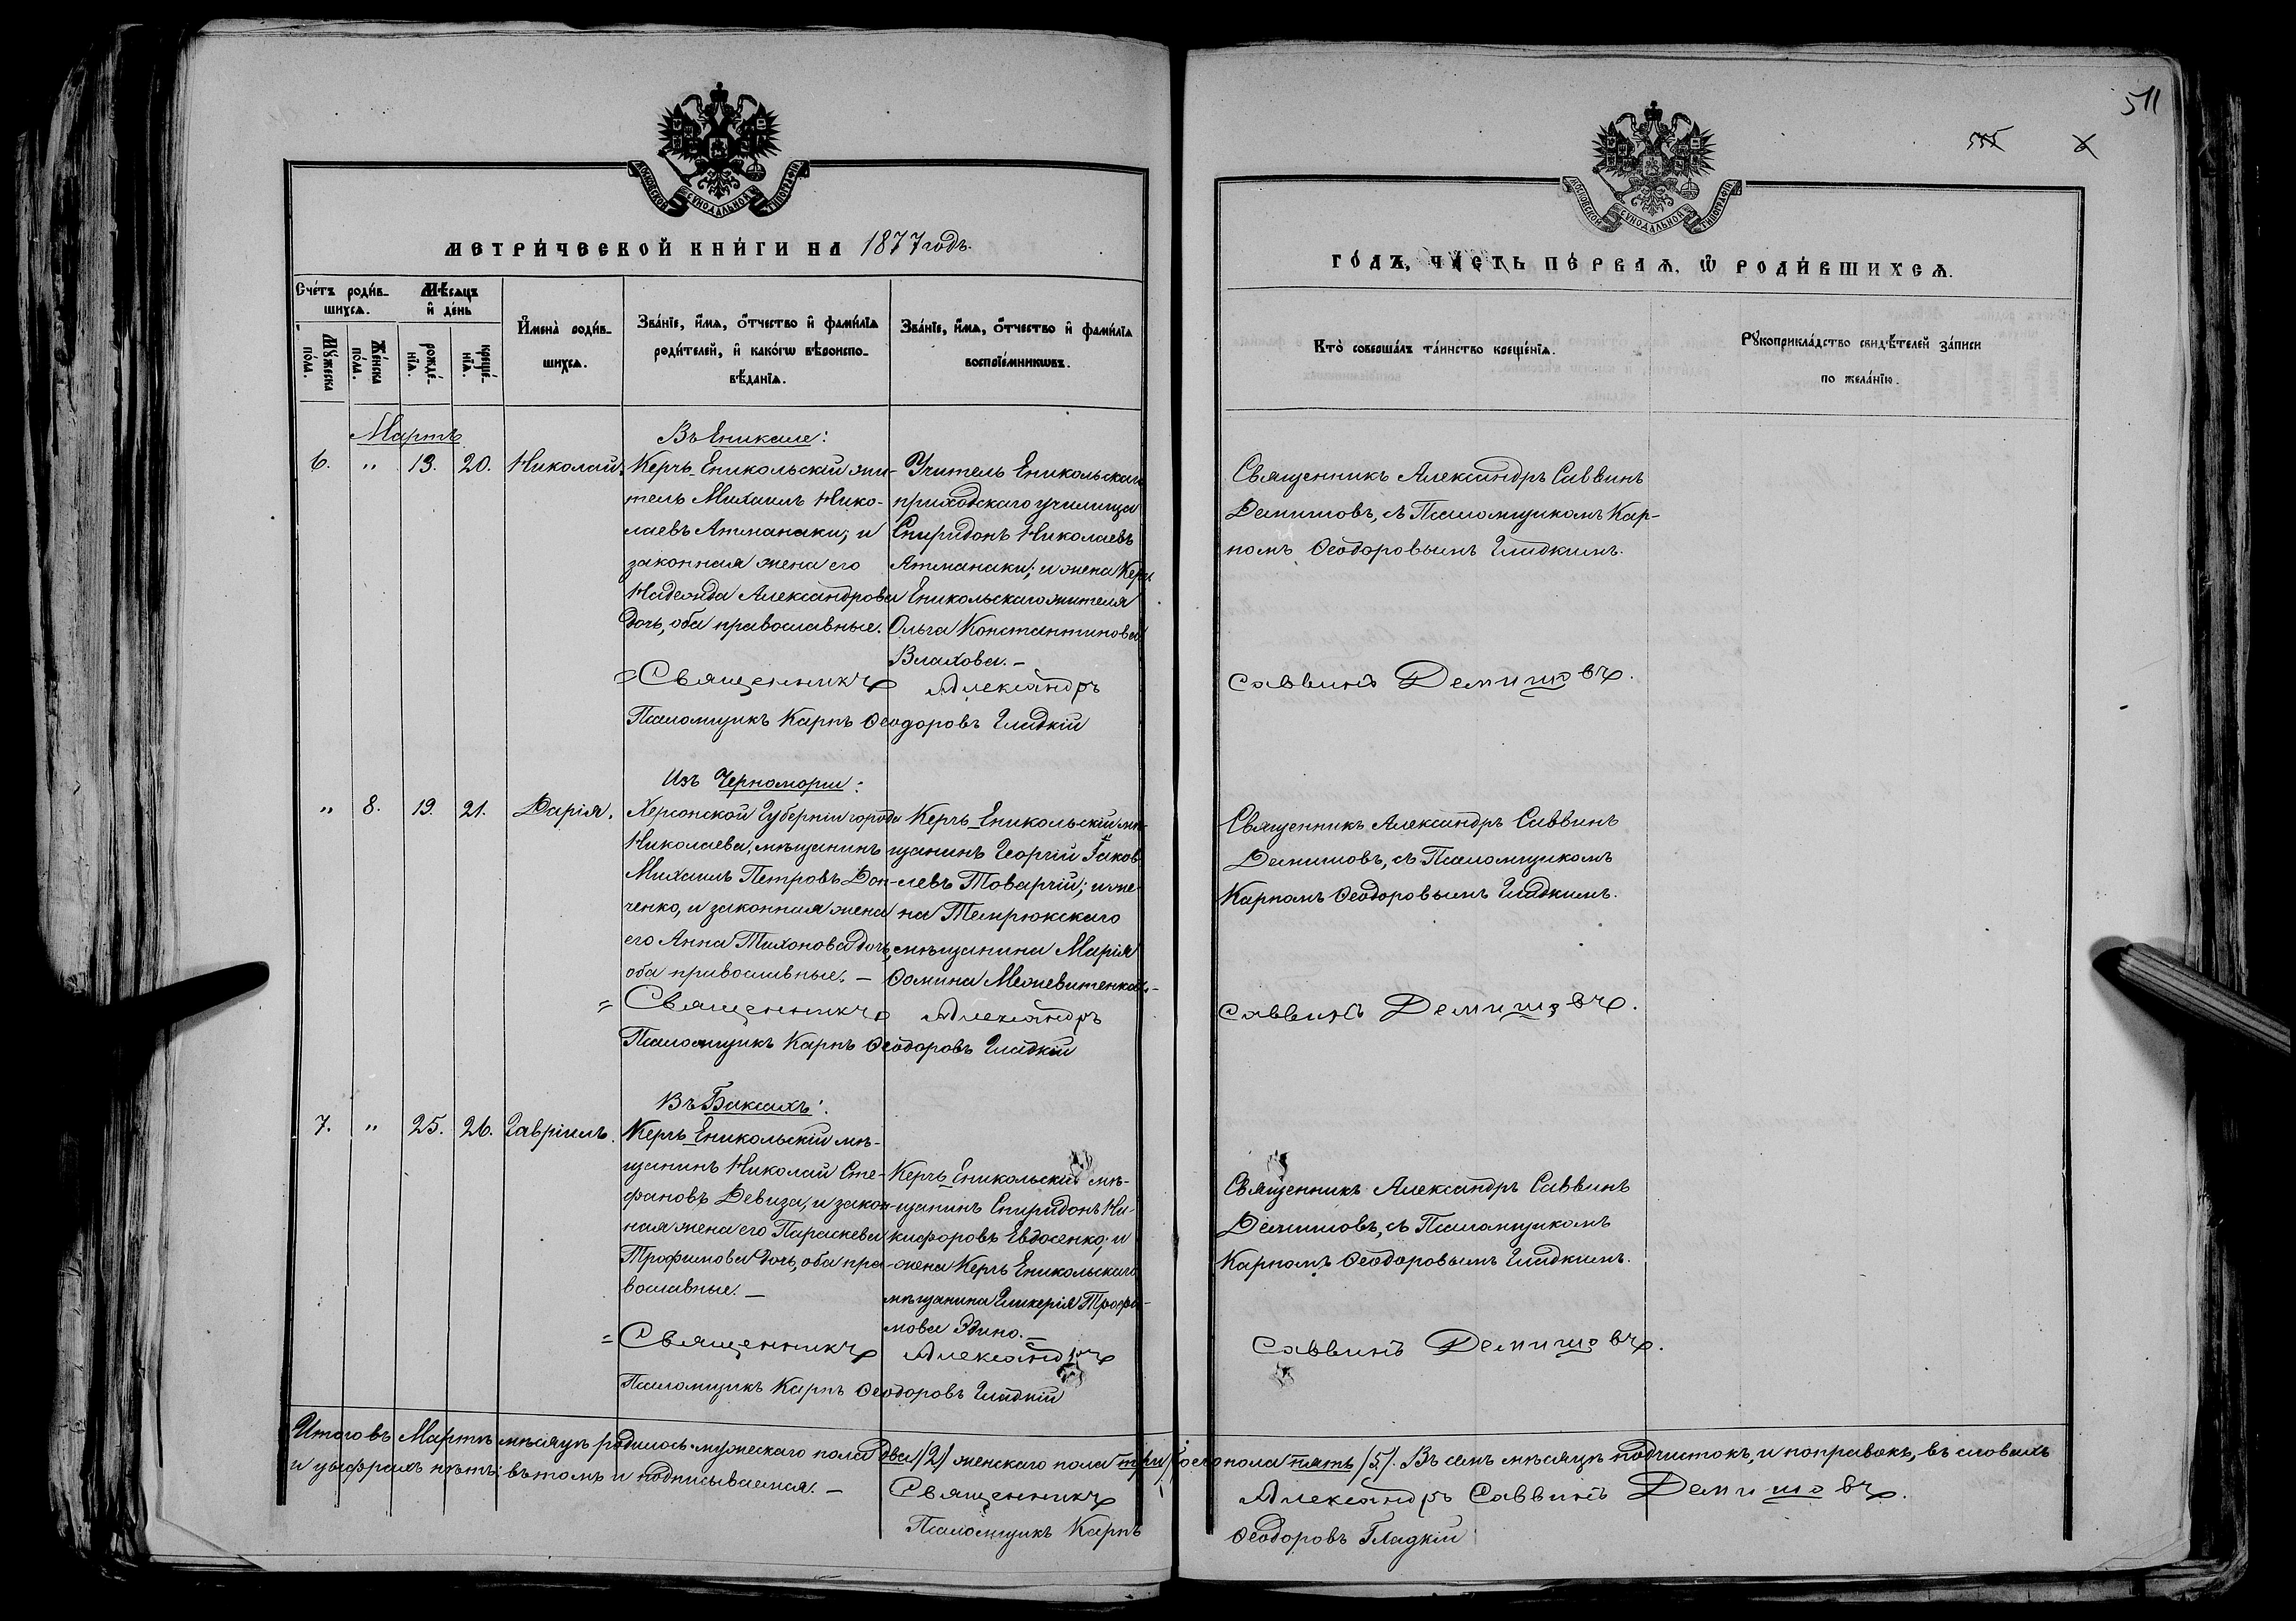 511
555
МОСКОВСКОЙ СѴНОДАЛЬНОЙ ТИПОГРАФІИ
МЕТРИ́ЧЕСКОЙ КНИ́ГИ НА 1877 годъ.
Сче́тъ роди́в-
шихсѧ.
Мѣ́сѧцъ
и҆ де́нь
Мꙋ́жеска
по́ла.
Же́нска
по́ла.
рожде́-
нїѧ.
креще́-
нїѧ.
И҆мена̀ роди́в-
шихсѧ.
Зва́нїе, и҆́мѧ, ѻ҆́тчество и҆ фами́лїѧ
роди́телей, и҆ како́гѡ вѣроиспо-
вѣ́данїѧ.
Зва́нїе, и҆́мѧ, ѻ҆́тчество и҆ фами́лїѧ
воспрїе́мникѡвъ.
Мартъ
Въ Еникале:
6. " 19. 20. Николай.
Керчь-Еникольскій жи-
тель Михаилъ Нико-
лаевъ Атманаки; и
законная жена его
Надежда Александрова
дочь, оба православные.
Учитель Еникольскаго
приходскаго училища
Спиридонъ Николаевъ
Атманаки; и жена Керчь
Еникольскаго жителя
Ольга Константинова
Влахова. -
=Священникъ Александръ
Псаломщикъ Карпъ Ѳеодоровъ Гладкій
Изъ Черноморіи:
" 8. 19. 21. Дарія.
Херсонской Губерніи города
Николаева, мѣщанинъ
Михаилъ Петровъ Дон-
ченко, и законная жена
его Анна Тихонова дочь,
оба православные. -
Керчь-Еникольскій мѣ-
щанинъ Георгій Іаков-
левъ Товарчій; и же-
на Темрюкскаго
мѣщанина Марія
Ѳомина
= Священникъ Александръ
Псаломщикъ Карпъ Ѳеодоровъ Гладкій
Въ Баксахъ:
7. " 25. 26. Гавріилъ.
Керчь-Еникольскій мѣ-
щанинъ Николай Сте-
фановъ Девиза, и закон-
ная жена его Параскева
Трофимова дочь, оба пра-
вославные. -
Керчь-Еникольскій мѣ-
щанинъ Спиридонъ Ни-
кифоровъ Евдосенко; и
жена Керчь Еникольскаго
мѣщанина Гликерія Трофи-
мова Эдино. -
= Священникъ Александръ
Псаломщикъ Карпъ Ѳеодоровъ Гладкій
МОСКОВСКОЙ СѴНОДАЛЬНОЙ ТИПОГРАФІИ
ГО́ДЪ, ЧА́СТЬ ПЕ́РВАѦ, Ѡ҆ РОДИ́ВШИХСѦ.
Кто̀ соверша́лъ та́инство креще́нїѧ.
Рꙋкоприкла́дство свидѣ́телей за́писи
по жела́нїю.
Священникъ Александръ Саввинъ
Демишовъ, съ Псаломщикомъ Кар-
помъ Ѳеодоровымъ Гладкимъ.
Саввинъ Демишовъ.
Священникъ Александръ Саввинъ
Демишовъ, съ Псаломщикомъ
Карпомъ Ѳеодоровымъ Гладкимъ.
Саввинъ Демишовъ.
Священникъ Александръ Саввинъ
Демишовъ, съ Псаломщикомъ
Карпомъ Ѳеодоровымъ Гладкимъ.
Саввинъ Демишовъ.
Итого въ Мартѣ мѣсяцѣ родилось мужескаго пола два /2/ женскаго пола три обоего пола пять /5/. Въ семъ мѣсяцѣ подчистокъ, и поправокъ, въ словахъ
и цыфрахъ нѣтъ: въ томъ и подписываемся. -
Священникъ Александръ Саввинъ Демишовъ.
Псаломщикъ Карпъ Ѳеодоровъ Гладкій